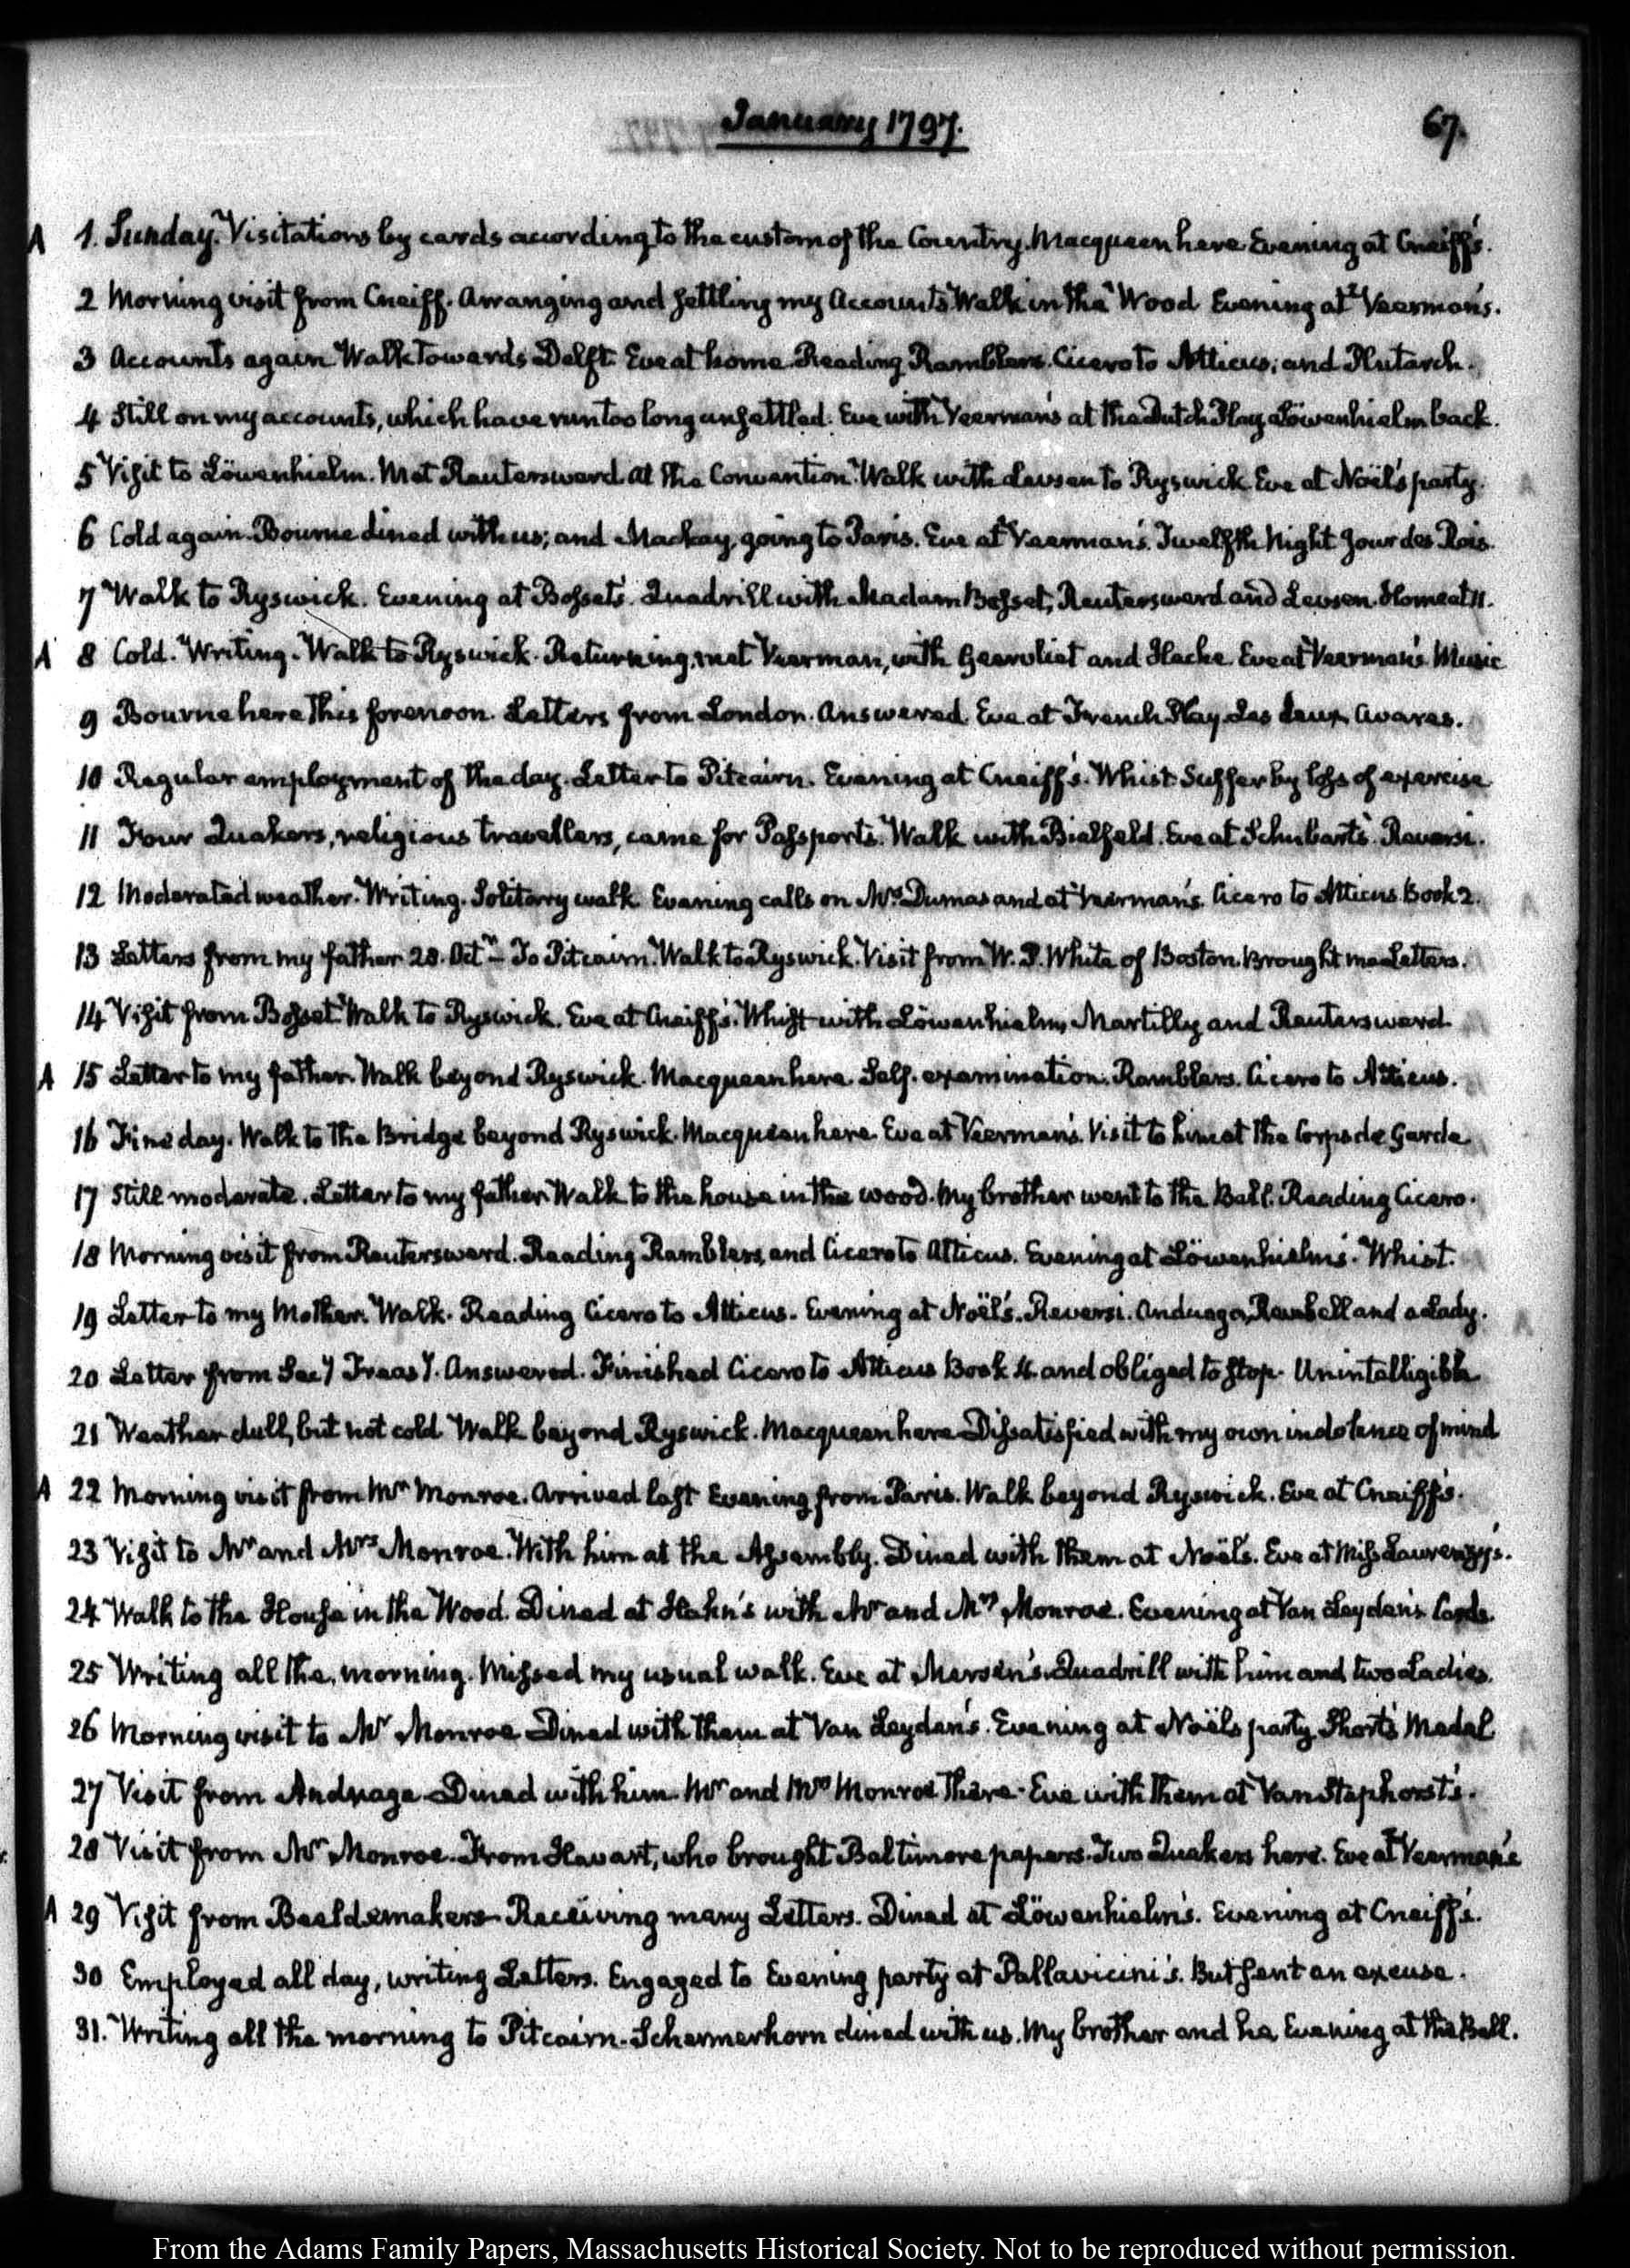 January 1797.
67.
A 1. Sunday. Visitations by cards according to the custom of the Country. Macqueen here Evening at Cneiff's.
2 Morning visit from Cneiff. Arranging and settling my Accounts Walk in the Wood Evening at Veerman's.
3 Accounts again Walk towards Delft Eve at home. Reading Ramblers. Cicero to Atticus; and Plutarch.
4 Still on my accounts, which have run too long unsettled. Eve with Veerman's at the Dutch Play Löwenhielm back.
5 Visit to Löwenhielm. Met Reutersward. At the Convention. Walk with Levsen to Ryswick Eve at Noël's party.
6 Cold again. Bourne dined with us; and Mackay, going to Paris. Eve at Veerman's. Twelfth Night Jour des Rois.
7 Walk to Ryswick. Evening at Bosset's. Quadrill with Madam Bosset, Reutersward and Levsen. Home at 11.
A 8 Cold. Writing. Walk to Ryswick. Returning, met Veerman, with Geervliet and Hacke Eve at Veerman's Music
9 Bourne here this forenoon. Letters from London. Answered. Eve at French Play Les deux Avares.
10 Regular employment of the day. Letter to Pitcairn. Evening at Cneiff's. Whist Suffer by loss of exercise
11 Four Quakers, religious travellers, came for Passports. Walk with Bielfeld. Eve at Schubart's. Reversi.
12 Moderated weather. Writing. Solitary walk Evening calls on Mrs. Dumas and at Veerman's. Cicero to Atticus. Book 2.
13 Letters from my father 28. Octr. To Pitcairn. Walk to Ryswick. Visit from W. P. White of Boston. Brought me Letters.
14 Visit from Bosset Walk to Ryswick. Eve at Cneiff's. Whist with Löwenhielm, Martilly and Reutersward.
A 15 Letter to my father. Walk beyond Ryswick. Macqueen here. Self. examination. Ramblers. Cicero to Atticus.
16 Fine day. Walk to the Bridge beyond Ryswick. Macqueen here. Eve at Veerman's. Visit to him at the Corps de Garde
17 Still moderate. Letter to my father Walk to the house in the wood. My brother went to the Ball. Reading Cicero.
18 Morning visit from Reutersward. Reading Ramblers, and Cicero to Atticus. Evening at Löwenhielm's. Whist.
19 Letter to my Mother. Walk. Reading Cicero to Atticus. Evening at Noël's. Reversi. Anduaga, Rewbell and a Lady.
20 Letter from Secy Treasy. Answered. Finished Cicero to Atticus Book 4. and obliged to stop. Unintelligible
21 Weather dull, but not cold Walk beyond Ryswick. Macqueen here Dissatisfied with my own indolence of mind
A 22 Morning visit from Mr Monroe. Arrived last Evening from Paris. Walk beyond Ryswick. Eve at Cneiff's.
23 Visit to Mr and Mrs Monroe. With him at the Assembly. Dined with them at Noël's. Eve at Miss Laurenzy's.
24 Walk to the House in the Wood. Dined at Hahn's with Mr and Mrs Monroe. Evening at Van Leyden's Cards.
25 Writing all the morning. Missed my usual walk. Eve at Mersen's. Quadrill with him and two Ladies.
26 Morning visit to Mr Monroe Dined with them at Van Leyden's. Evening at Noëls party Short's Medal
27 Visit from Anduaga Dined with him Mr and Mrs Monroe there. Eve with them at Van Staphorst's.
28 Visit from Mr Monroe. From Havart, who brought Baltimore papers. Two Quakers here. Eve at Veerman's
A 29 Visit from Beeldemakers Receiving many Letters. Dined at Löwenhielm's. Evening at Cneiff's.
30 Employed all day, writing Letters. Engaged to Evening party at Pallavicini's. But sent an excuse.
31. Writing all the morning to Pitcairn. Schermerhorn dined with us. My brother and he, Evening at the Ball.
From the Adams Family Papers, Massachusetts Historical Society. Not to be reproduced without permission.